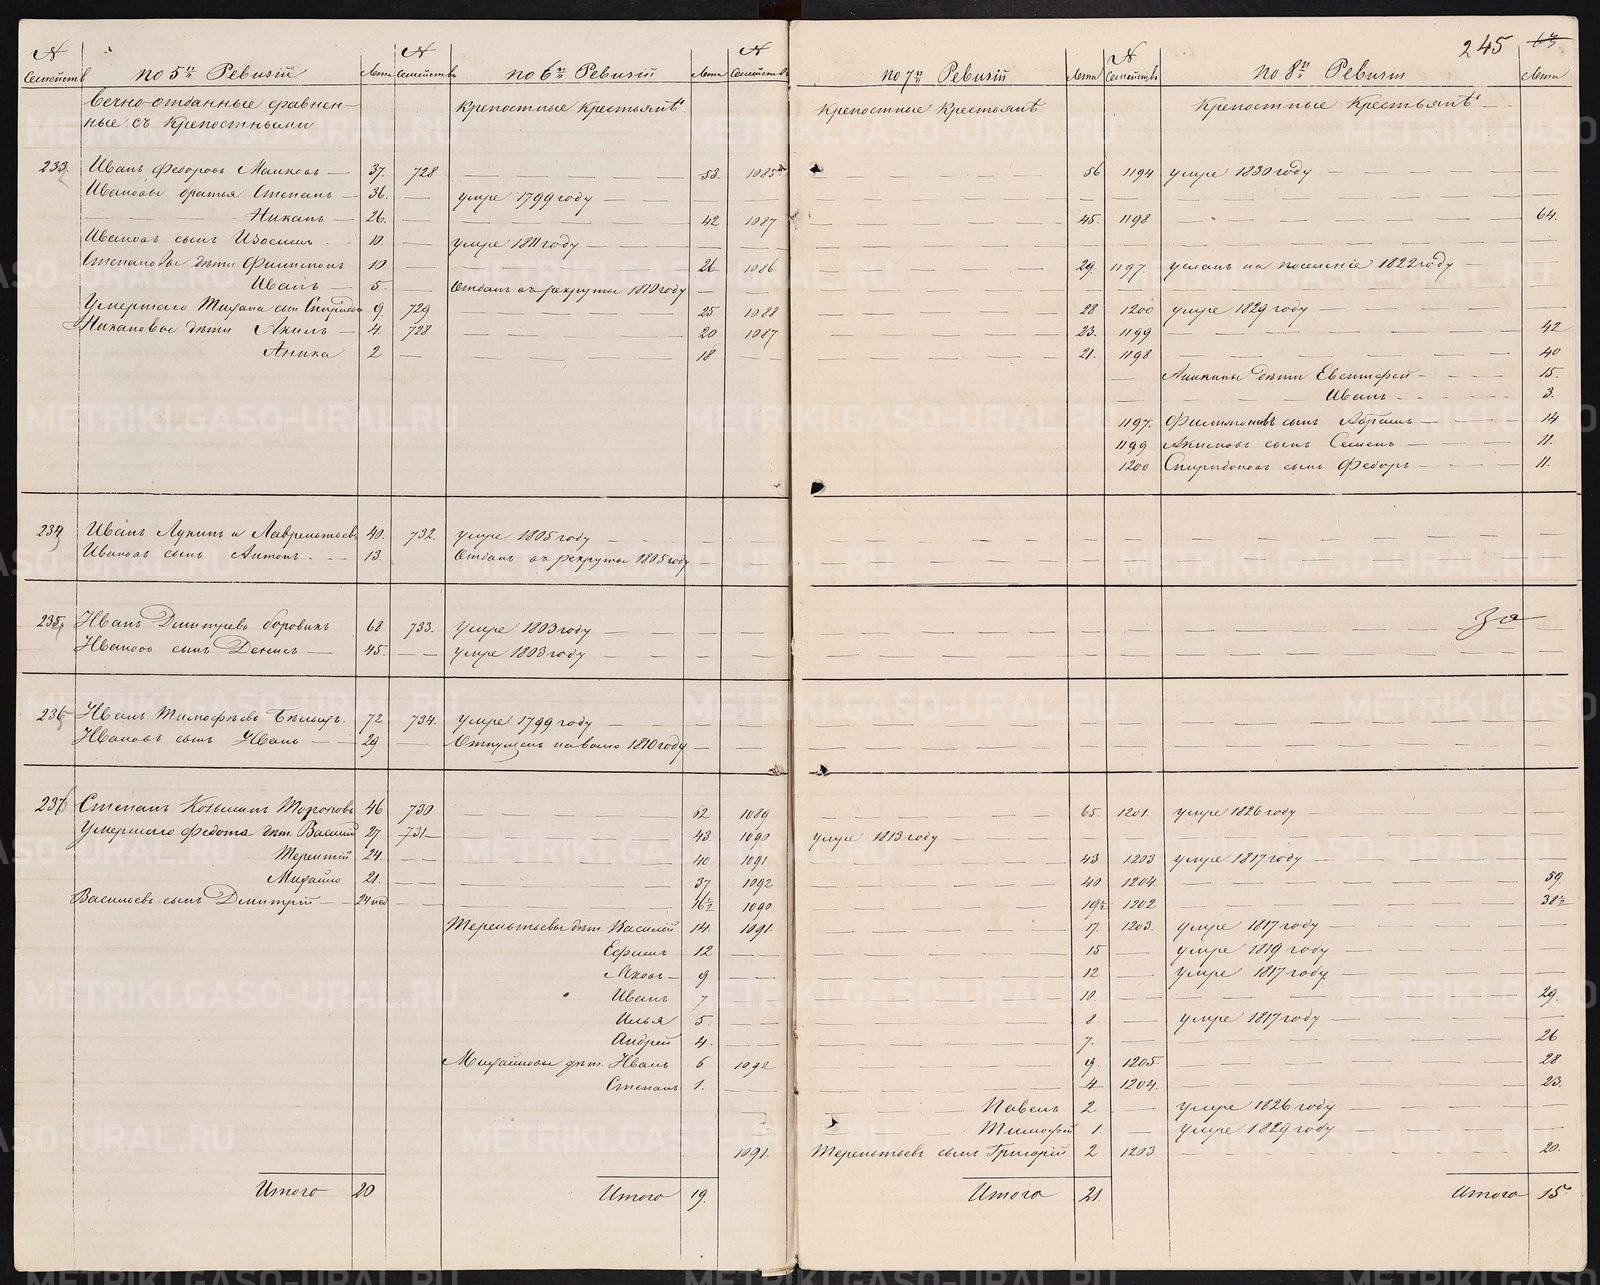 245
№ Семействъ по 5й Ревизіи Лета № Семействъ по 6й Ревизіи Лета № Семействъ по 7й Ревизіи Лета № Семействъ по 8й Ревизіи Лета
вечно-отданные сравнен- Крепостные Крестьянѣ Крепостные Крестьянѣ Крепостные Крестьянѣ
ные съ крепостными
233 Иванъ Федоровъ 37. 728 53. 1085 56 1194 умре 1830 году
Ивановы братья Степанъ 36. умре 1799 году
Никанъ 26. 42 1087 45. 1198 64.
Ивановъ сынъ Изосимъ 10. умре 1811 году
Степановы дѣти Филимонъ 10 26 1086 29 1197. усланъ на поселеніе 1822 году
Иванъ 5. Отданъ въ рекруты 1810 году
Умершаго сын Спиридон 9. 729 25 1088 28 1200 умре 1829 году
Никановы дѣти Акимъ 4. 728 20 1087 23. 1199 42
Аника 2 18 21. 1198 40
Аникины дѣти Евстифей 15.
Иванъ 3.
1197. Филимоновъ сынъ Абрамъ 14
1199 Акимовъ сынъ Семенъ 11.
1200 Спиридоновъ сынъ Федоръ 11.
234 Иванъ Лукинъ и Лаврентьевъ 40. 732. умре 1805 году
Ивановъ сынъ Антонъ 13. Отданъ въ рекруты 1805 году
235 Иванъ Дмитревъ боровикъ 68 733. умре 1803 году
Ивановъ сынъ Денисъ 45. умре 1803 году
236 Иванъ Тимофѣевъ 72 734. умре 1799 году
Ивановъ сынъ Иванъ 29 Отпущенъ на волю 1810 году
237 Степанъ Козьминъ 46 730 62 1089 65. 1201. умре 1826 году
Умершаго Федота дѣт. Василій 27 731 43. 1090 умре 1813 году
Терентій 24. 40 1091 43 1203 умре 1817 году
Михайло 21. 37 1092 40 1204. 59.
Васильевъ сынъ Дмитрій 24 нед 16½ 1090 19½ 1202 38½
Терентьевы дѣт. Василій 14. 1091. 17. 1203. умре 1817 году
Ефимъ 12 15 умре 1819 году
Яковъ 9 12 умре 1817 году
Иванъ 7 10. 29.
Илья 5. 8. умре 1817 году
Андрей 4. 7. 26
Михайловы дѣт. Иванъ 6 1092 9. 1205 28
Степанъ 1. 4 1204. 23.
Павелъ 2 умре 1826 году
Тимофей 1. умре 1829 году
1091. Терентьевъ сынъ Григорій 2 1203 20.
Итого 20 Итого 19. Итого 21. Итого 15
METRIKI.GASO-URAL.RU